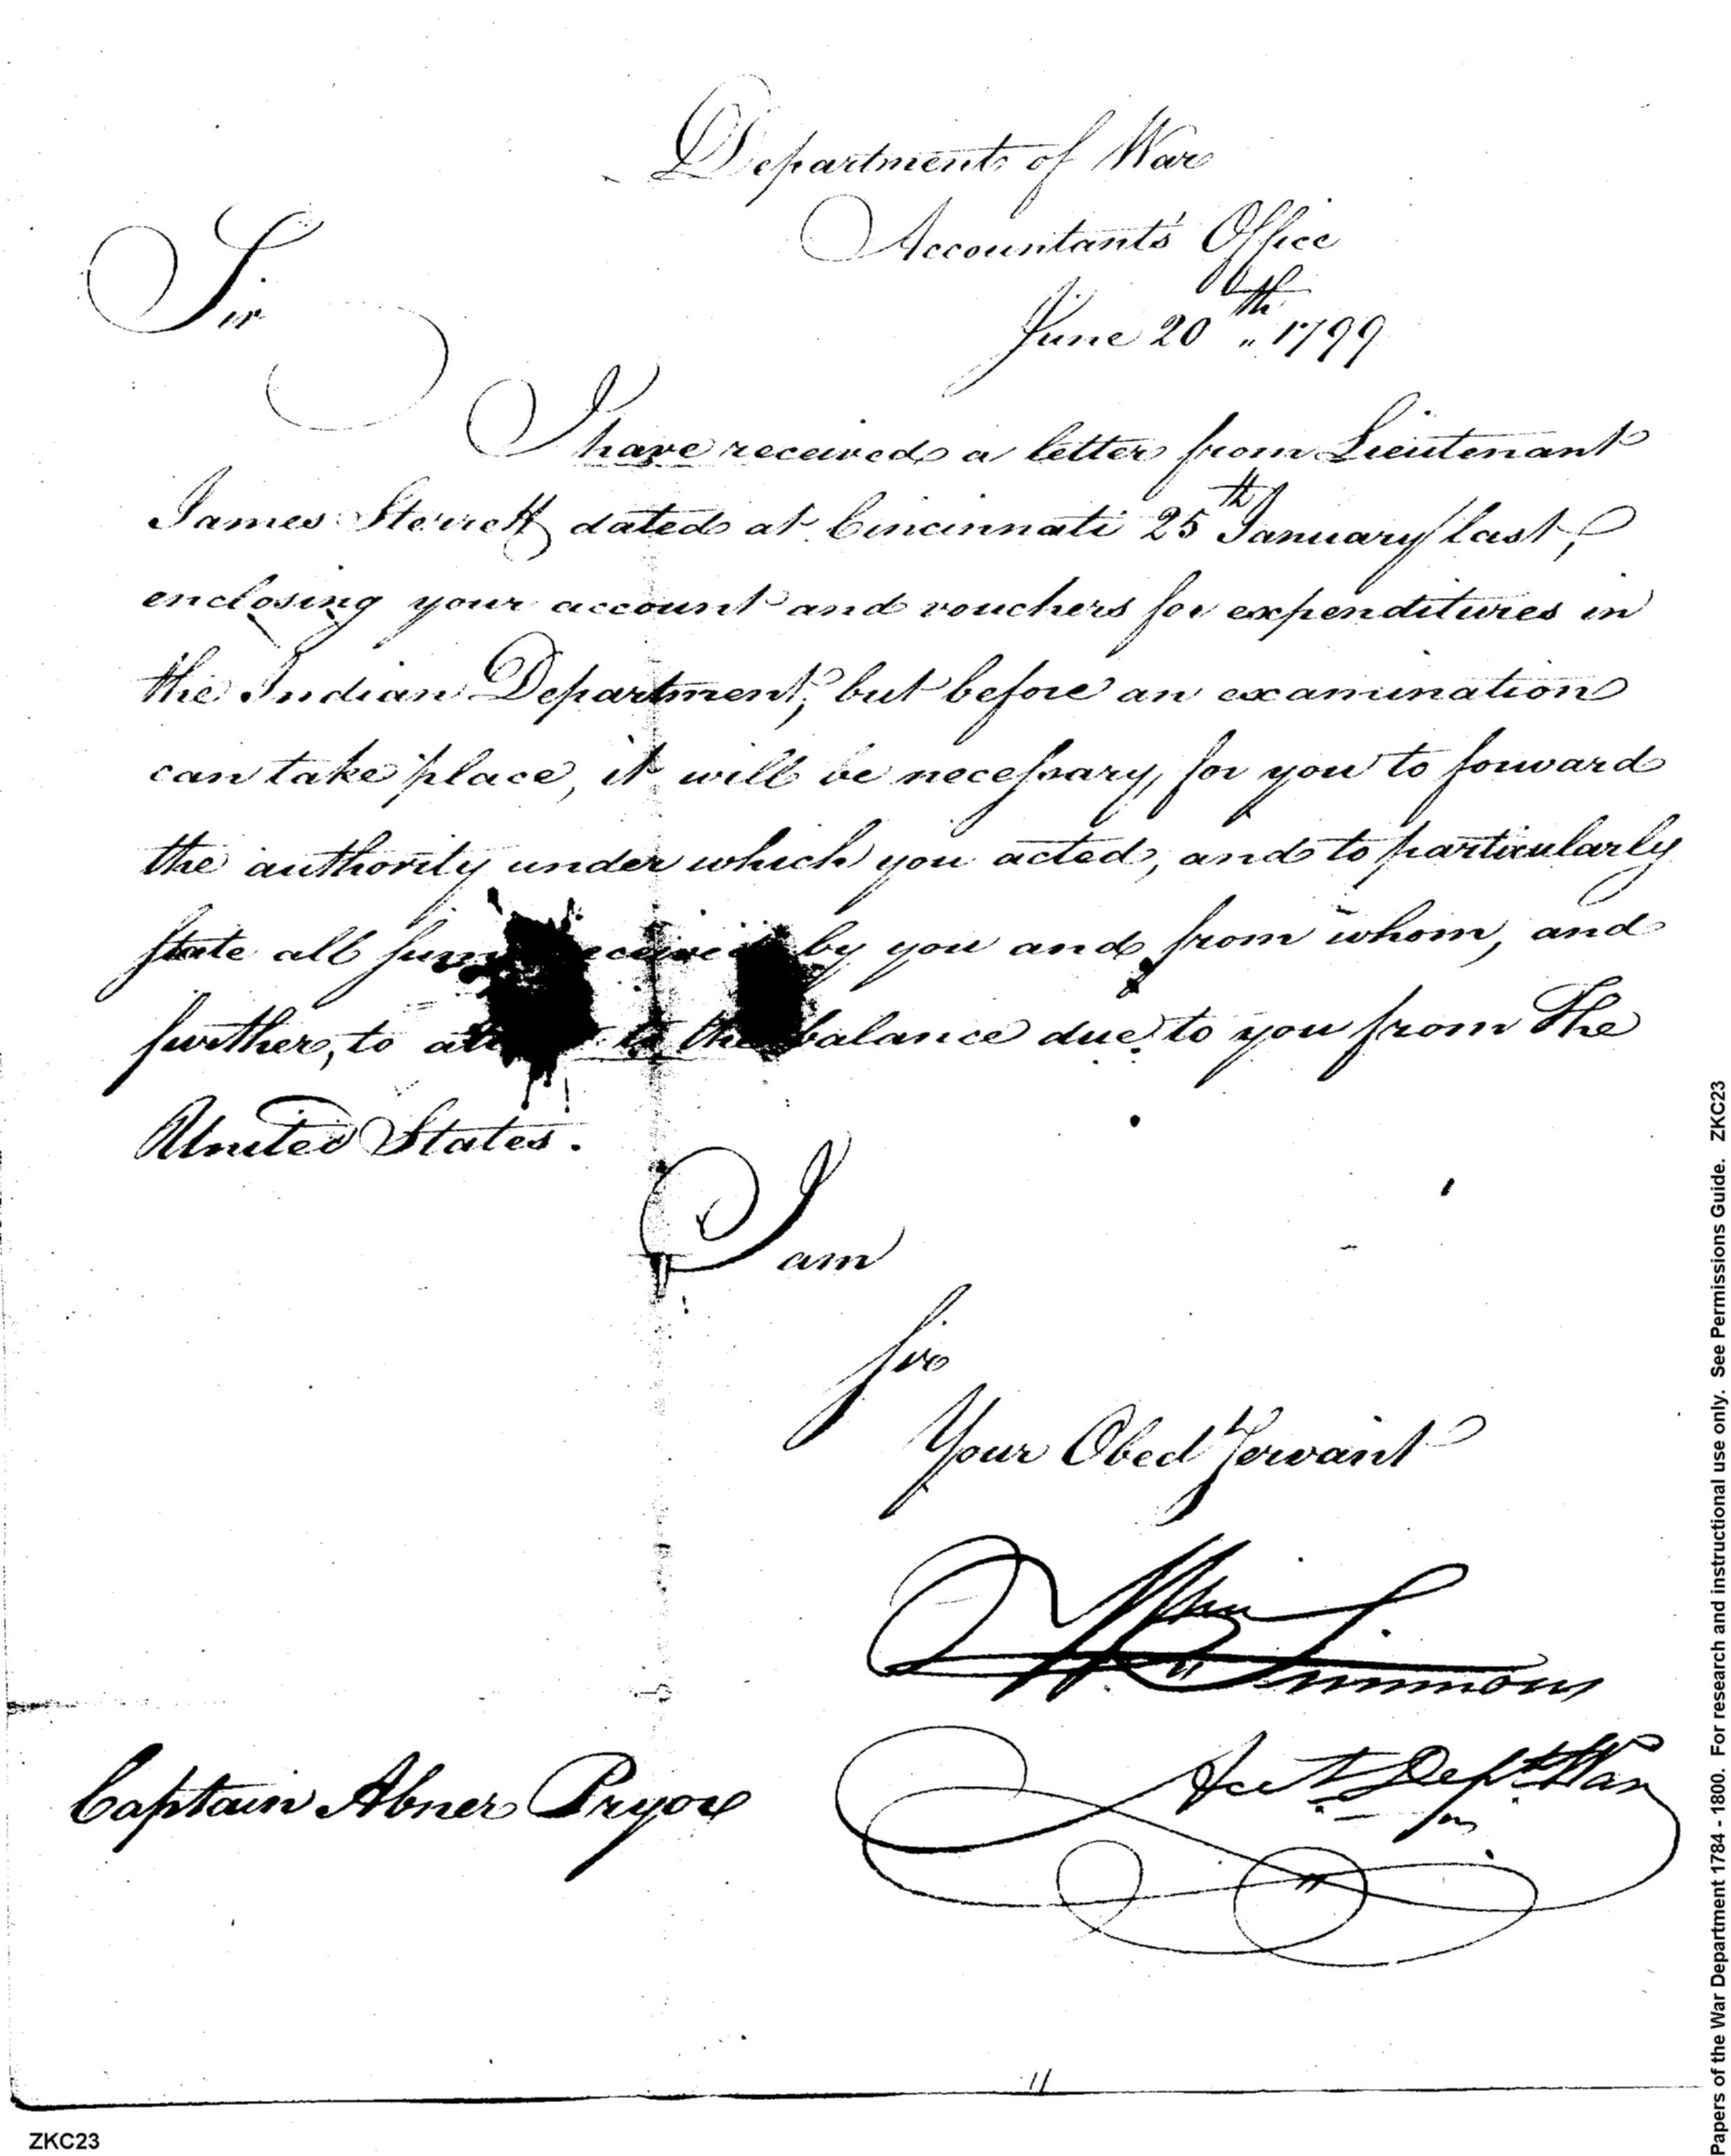 Department of War
Accountant's Office
June 20th 1799
Sir
I have received a letter from Lieutenant
James Sterrett dated at Cincinnati 25th January last,
enclosing your account and vouchers for expenditures in
the Indian Department, but before an examination
can take place, it will be necessary, for you to forward
the authority under which you acted, and to particularly
state all sums received by you and from whom, and
further, to the balance due to you from The
United States.
I am
Sir
Your Obedt Servant
Wm Simmons
Acct Dept War
Captain Abner Pryor
ZKC23
Papers of the War Department 1784 - 1800. For research and instructional use only. See Permissions Guide. ZKC23